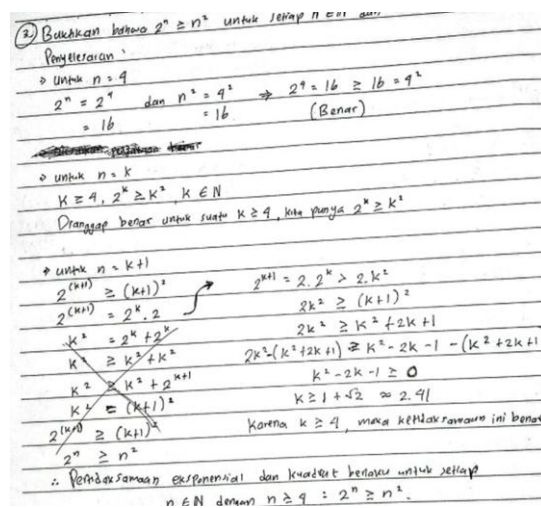 ② Buktikan bahwa 2ⁿ ≥ n² untuk setiap n ∈ N dan
Penyelesaian :
→ untuk n = 4
2ⁿ = 2⁴ dan n² = 4² ⇒ 2⁴ = 16 ≥ 16 = 4²
= 16 = 16 (Benar)
→ untuk n = k
k ≥ 4, 2ᵏ ≥ k², k ∈ N
Dianggap benar untuk suatu k ≥ 4, kita punya 2ᵏ ≥ k²
→ untuk n = k+1
2⁽ᵏ⁺¹⁾ ≥ (k+1)²
2⁽ᵏ⁺¹⁾ = 2ᵏ . 2
k² = 2ᵏ + 2ᵏ
k² ≥ k² + k²
k² ≥ k² + 2ᵏ⁺¹
k² = (k+1)²
2⁽ᵏ⁺¹⁾ ≥ (k+1)²
2ⁿ ≥ n²
2ᵏ⁺¹ = 2 . 2ᵏ ≥ 2 . k²
2k² ≥ (k+1)²
2k² ≥ k² + 2k + 1
2k² - (k² + 2k + 1) ≥ k² - 2k - 1 - (k² + 2k + 1
k² - 2k - 1 ≥ 0
k ≥ 1 + √2 ≈ 2.41
Karena k ≥ 4, maka ketidaksamaan ini benar
∴ Pertidaksamaan eksponensial dan kuadrat berlaku untuk setiap
n ∈ N dengan n ≥ 4 : 2ⁿ ≥ n².